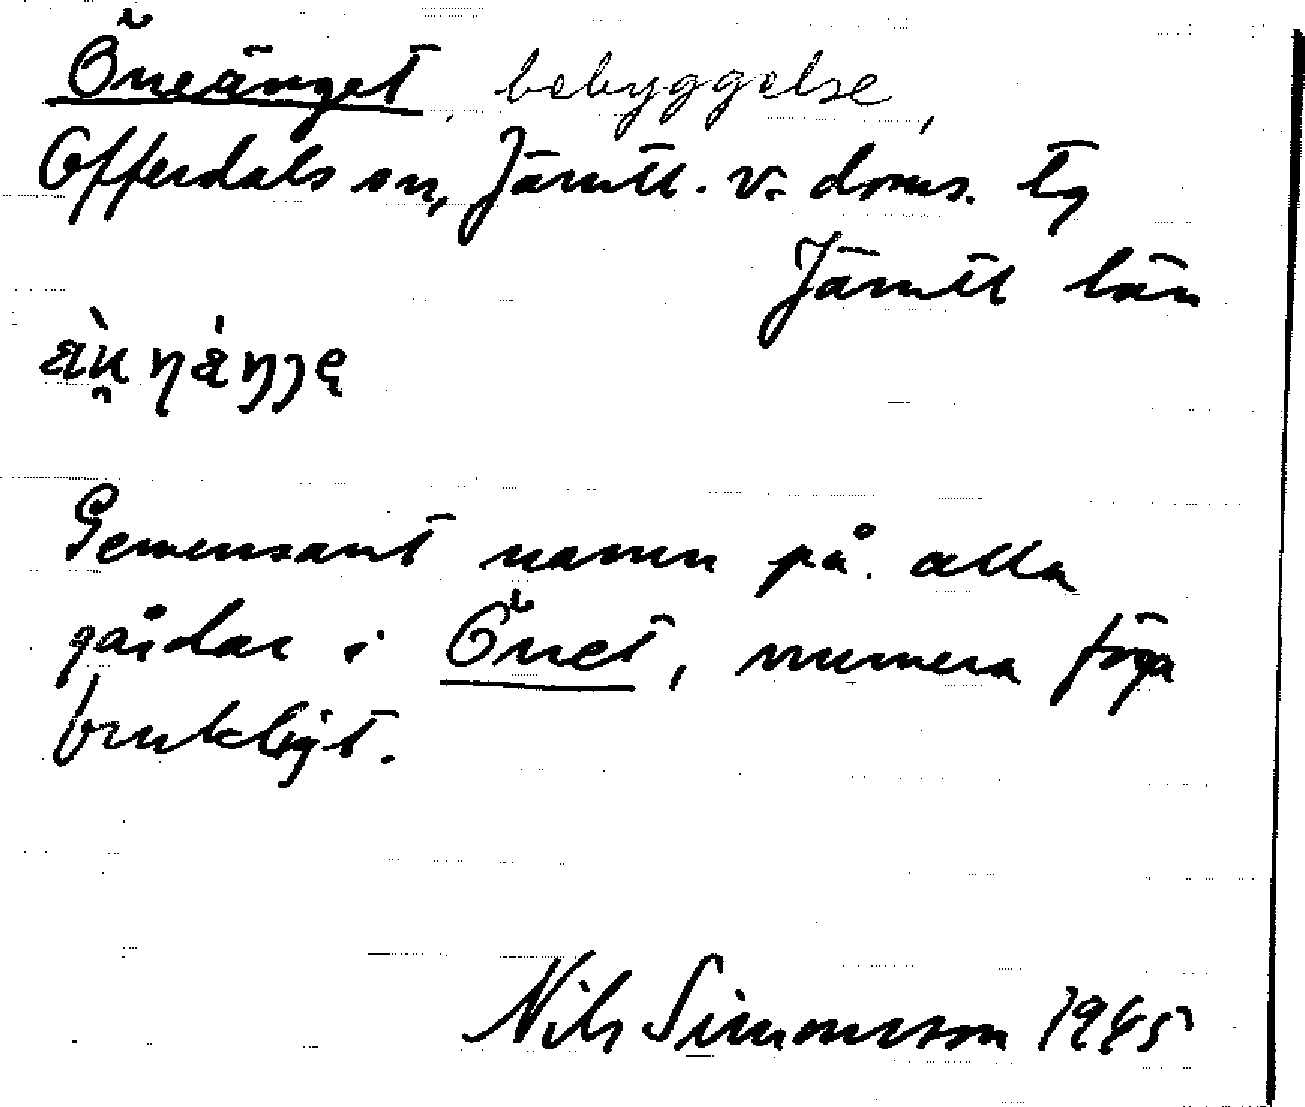 Öneänget, bebyggelse,
Offerdals sn, Jämtl. v. doms. tg
Jämtl län
Gemensamt namn på alla
gårdar i Önet, numera föga
brukligt.
Nils Simonsson 1945